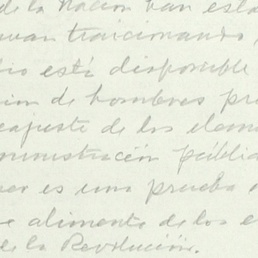 de la Nación van esta
van traicionando
cio está disponible
ion de hombres pre
eajuste de los elem
ministración públi
er es una prueba
se alimenta de los e
de la Revolución.